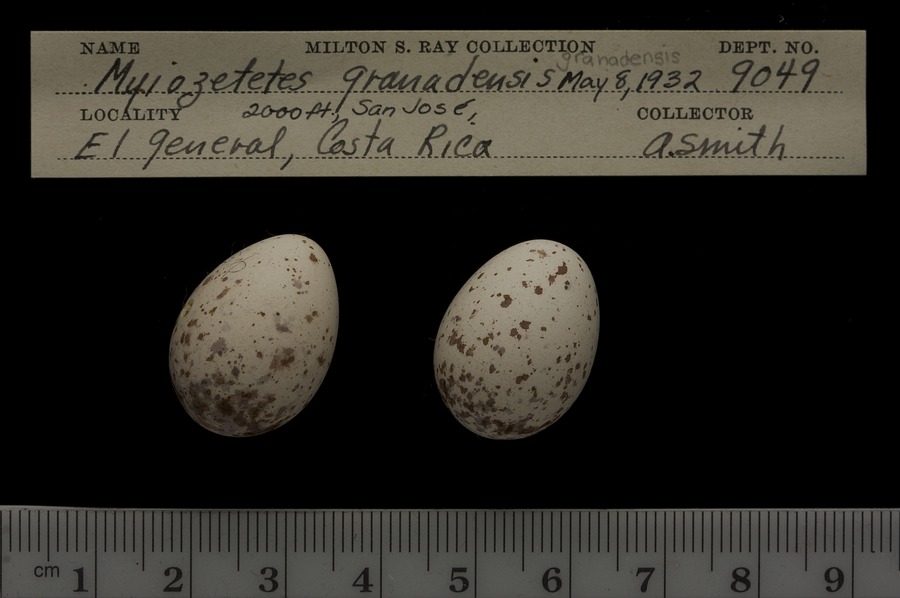 NAME MILTON S. RAY COLLECTION DEPT. NO.
granadensis
Myiozetetes granadensis May 8, 1932 9049
LOCALITY 2000 ft, San José, COLLECTOR
El General, Costa Rica A. Smith
cm 1 2 3 4 5 6 7 8 9